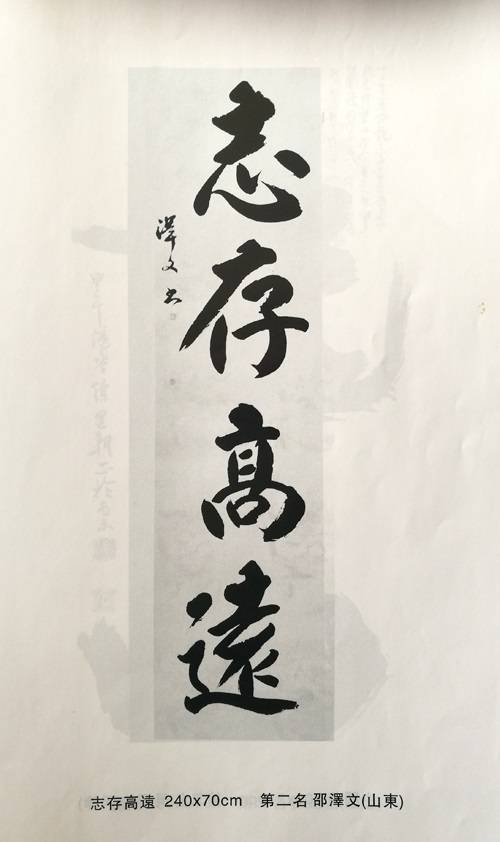 志存高遠
澤文書
志存高遠 240x70cm 第二名 邵澤文(山東)